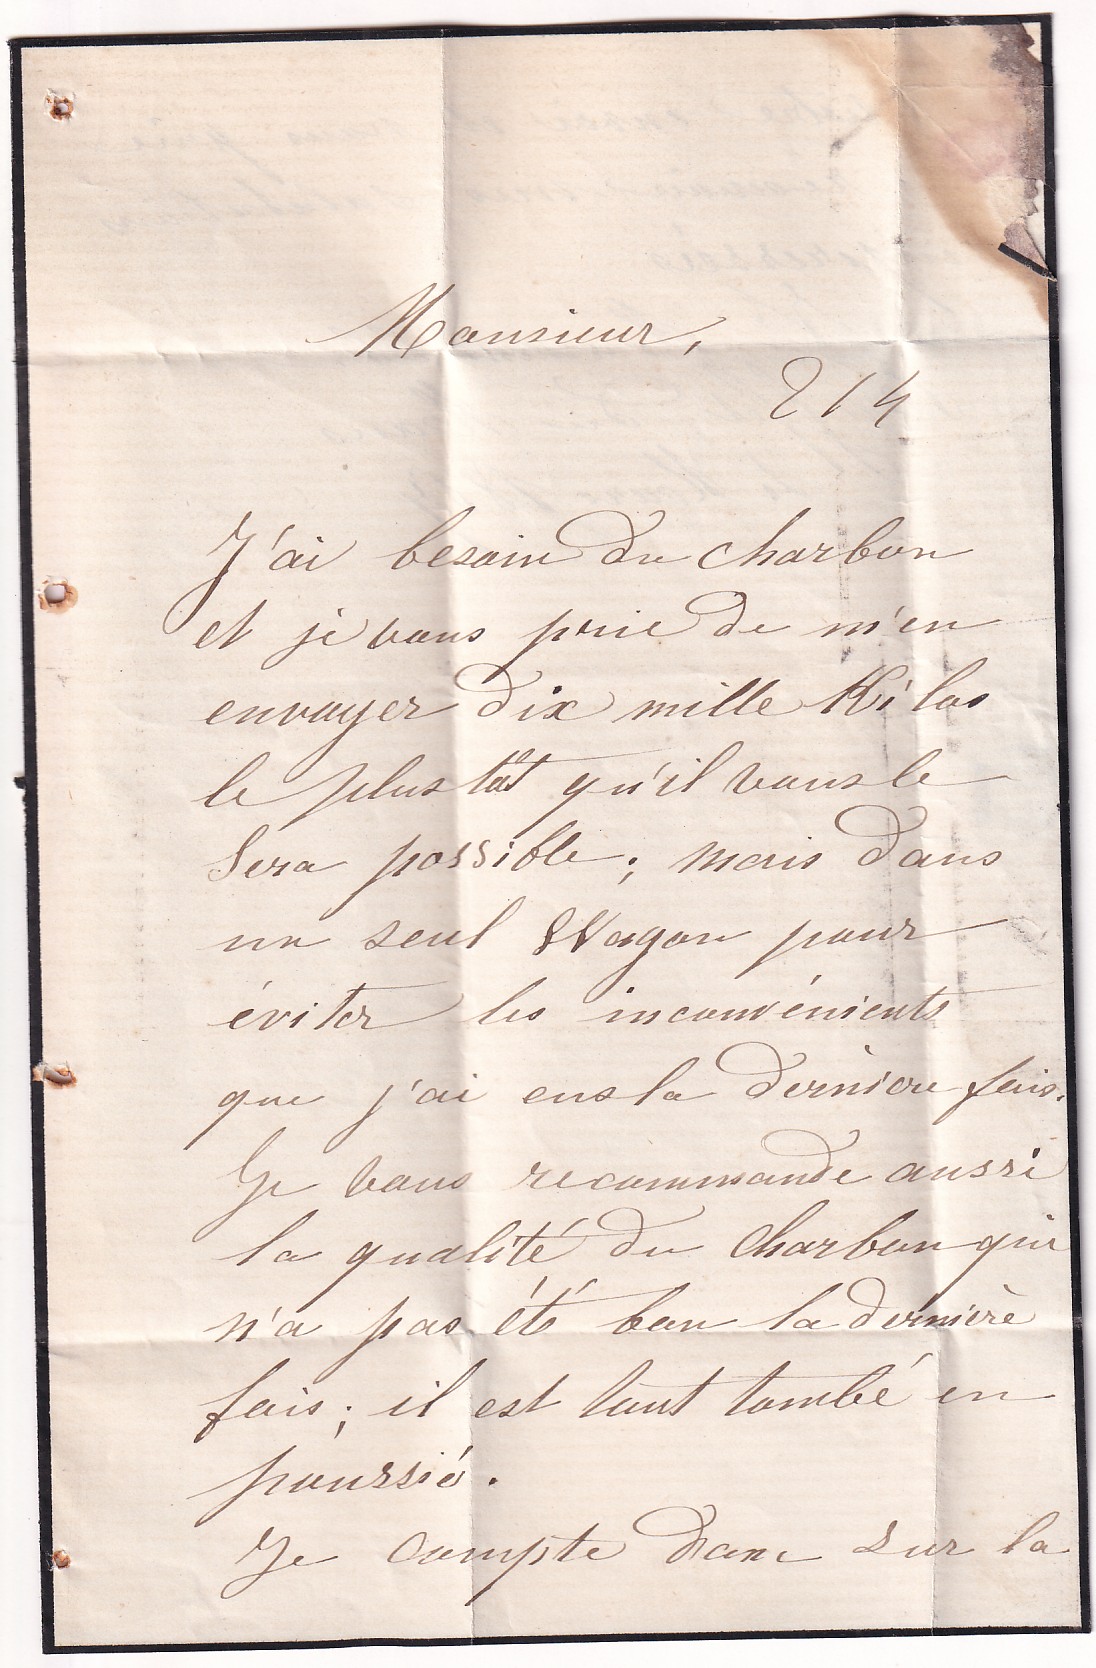 Monsieur,
214
J'ai besoin du charbon
et je vous prie de m'en
envoyer dix mille Kilos
le plus tôt qu'il vous le
Sera possible ; mais dans
un seul Wagon pour
éviter les inconvénients
que j'ai eus la dernière fois.
Je vous recommande aussi
la qualité du charbon qui
n'a pas été bon la dernière
fois ; il est tout tombé en
poussié.
Je compte donc sur la